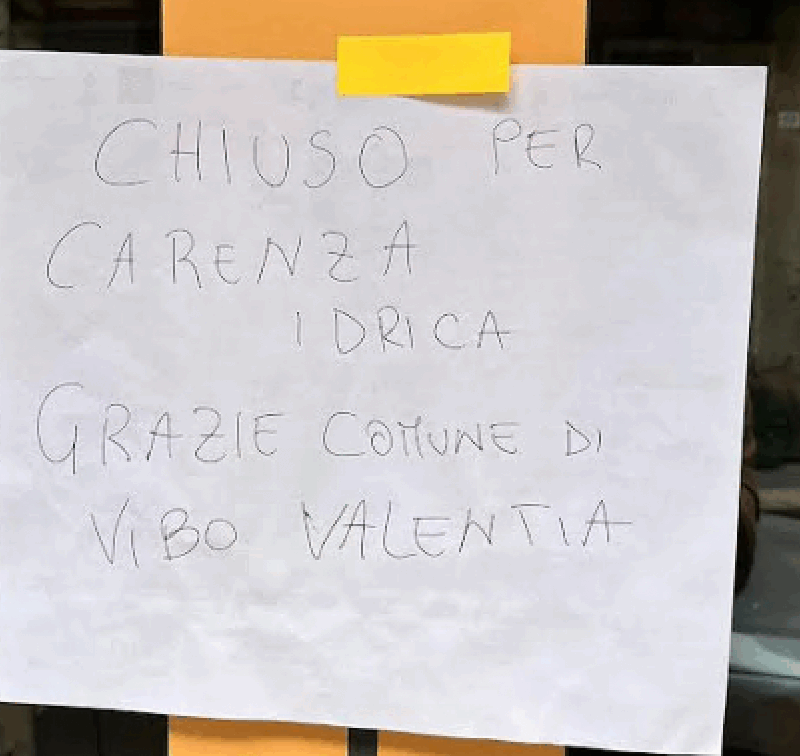 CHIUSO PER
CARENZA
IDRICA
GRAZIE COMUNE DI
VIBO VALENTIA